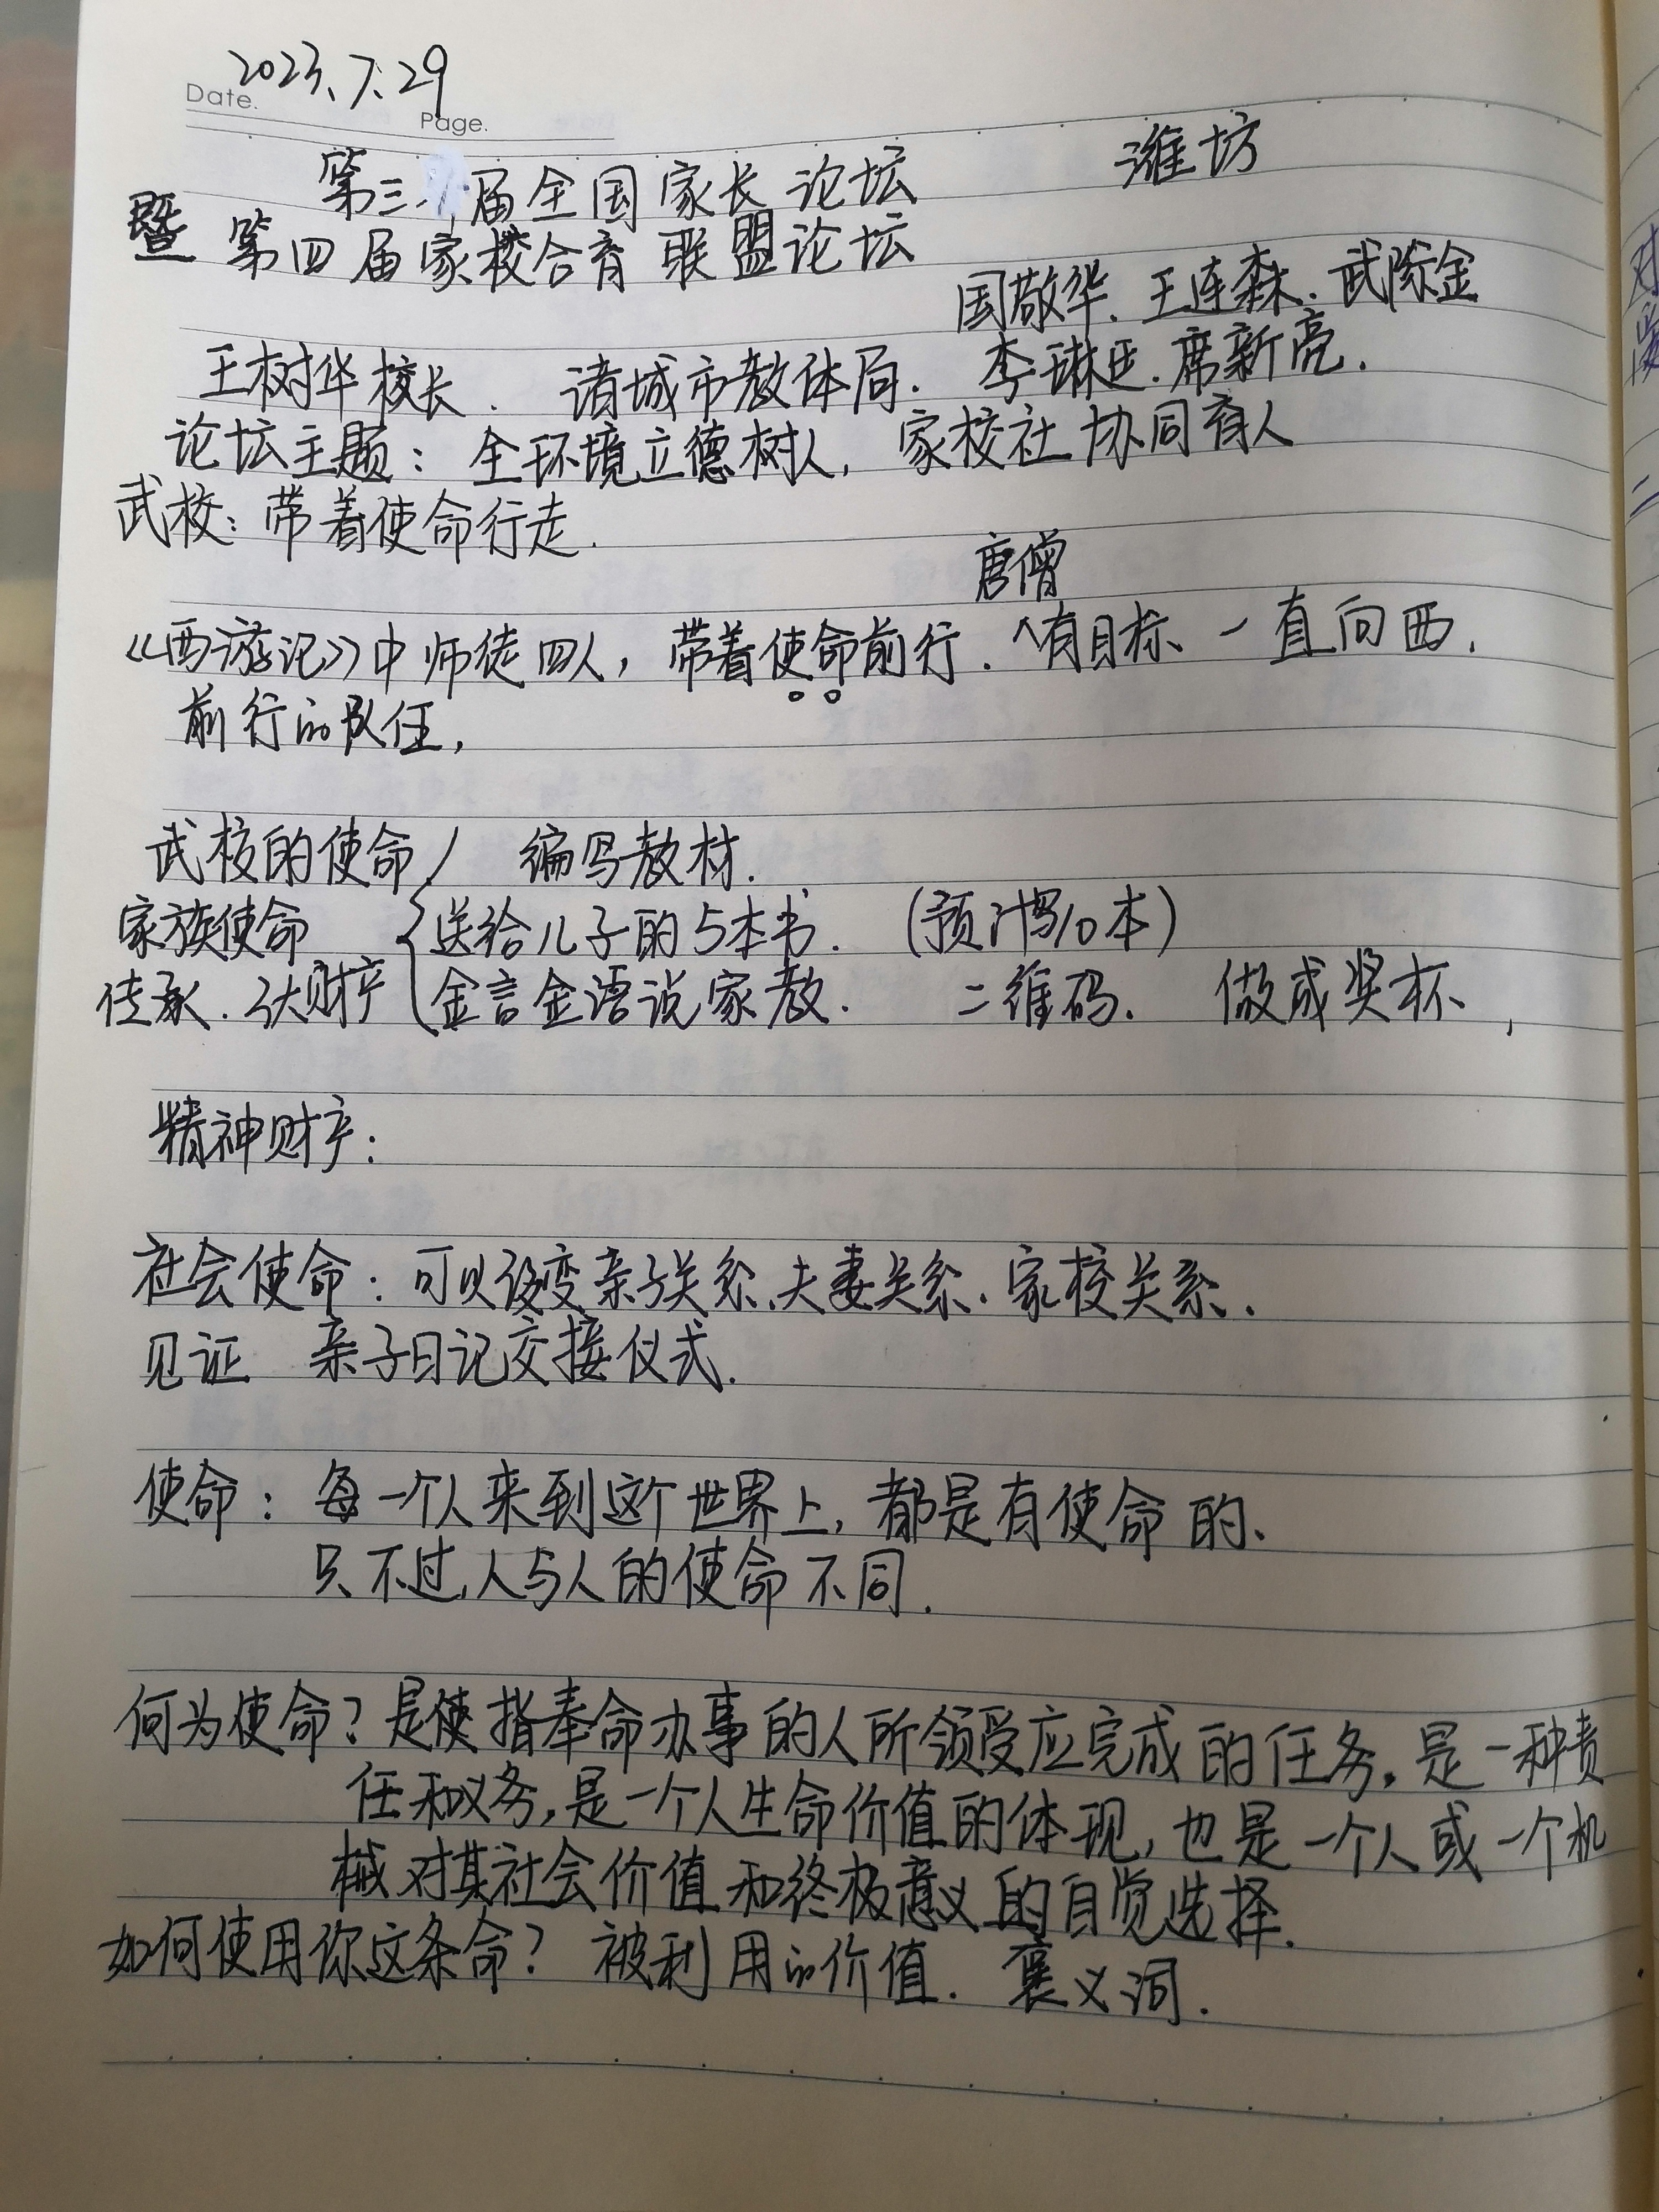 2023.7.29
Date.
Page.
第三届全国家长论坛 潍坊
暨 第四届家校合育联盟论坛
国敬华. 王连森. 武际金
王树华校长. 诸城市教体局. 李琳正. 席新亮.
论坛主题: 全环境立德树人, 家校社协同育人
武校: 带着使命行走.
唐僧
《西游记》中师徒四人, 带着使命前行. ^有目标、一直向西.
前行的队伍,
武校的使命 编写教材.
家族使命 送给儿子的5本书. (预计写10本)
传承. 3大财产 金言金语说家教. 二维码. 做成奖杯、
精神财产:
社会使命: 可以改变亲子关系、夫妻关系. 家校关系.
见证 亲子日记交接仪式.
使命: 每一个人来到这个世界上, 都是有使命的、
只不过, 人与人的使命不同.
何为使命? 是使指奉命办事的人所领受应完成的任务, 是一种责
任和义务, 是一个人生命价值的体现, 也是一个人或一个机
械对其社会价值和终极意义的自觉选择.
如何使用你这条命? 被利用的价值. 褒义词.